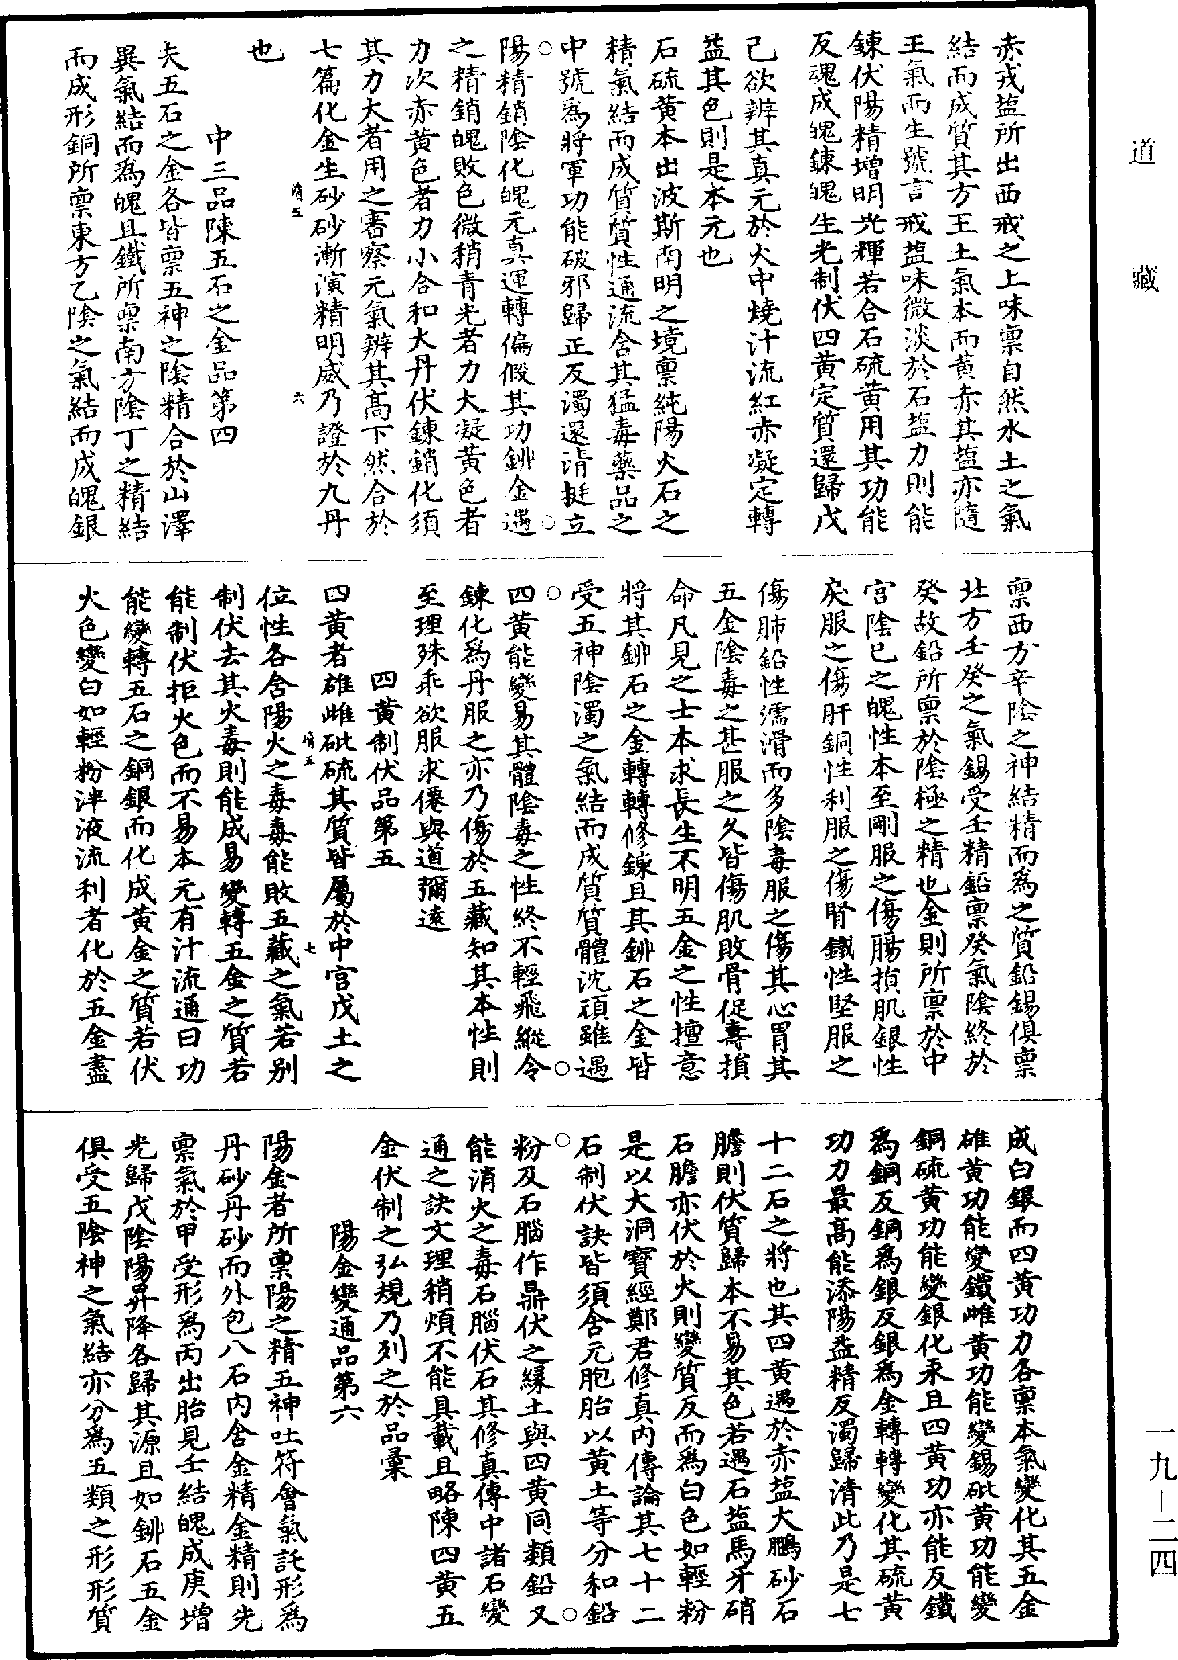 道藏
赤戎盐所出西戎之上味禀自然水土之氣
結而成質其方王土氣本而黃赤其盐亦隨
王氣而生號言戒盐味微淡於石盐力則能
鍊伏陽精增明光輝若合石硫黃用其功能
反魂成魄鍊魄生光制伏四黃定質還歸戊
己欲辨其真元於火中燒汁流紅赤凝定轉
益其色則是本元也
石硫黃本出波斯南明之境禀純陽火石之
精氣結而成質質性通流含其猛毒藥品之
中號爲將軍功能破邪歸正反濁還清挺立
陽精銷陰化魄元真運轉偏假其功鉚金遇
之精銷魄敗色微稍青光者力大凝黃色者
力次赤黃色者力小合和大丹伏鍊銷化須
其力大者用之審察元氣辨其高下然合於
七篇化金生砂砂漸演精明威乃證於九丹
也
清五
六
中三品陳五石之金品第四
夫五石之金各皆禀五神之陰精合於山澤
異氣結而爲魄且鐵所禀南方陰丁之精結
而成形銅所禀東方乙陰之氣結而成魄銀
禀西方辛陰之神結精而爲之質鉛錫俱禀
北方壬癸之氣錫受壬精鉛禀癸氣陰終於
癸故鉛所禀於陰極之精也金則所禀於中
宮陰已之魄性本至剛服之傷腸損肌銀性
戾服之傷肝銅性利服之傷腎鐵性堅服之
傷肺鉛性濡滑而多陰毒服之傷其心胃其
五金陰毒之甚服之久皆傷肌敗骨促壽損
命凡見之士本求長生不明五金之性擅意
將其鉚石之金轉轉修鍊且其鉚石之金皆
受五神陰濁之氣結而成質質體沈頑雖遇
四黃能變易其體陰毒之性終不輕飛縱令
鍊化爲丹服之亦乃傷於五藏知其本性則
至理殊乖欲服求僊與道彌遠
四黃制伏品第五
四黃者雄雌砒硫其質皆屬於中宮戊土之
清五
七
位性各含陽火之毒毒能敗五藏之氣若別
制伏去其火毒則能成易變轉五金之質若
能制伏拒火色而不易本元有汁流通曰功
能變轉五石之銅銀而化成黃金之質若伏
火色變白如輕粉泮液流利者化於五金盡
成白銀而四黃功力各禀本氣變化其五金
雄黃功能變鐵雌黃功能變錫砒黃功能變
銅硫黃功能變銀化汞且四黃功亦能反鐵
爲銅反銅爲銀反銀爲金轉轉變化其硫黃
功力最高能添陽益精反濁歸清此乃是七
十二石之將也其四黃遇於赤盐大鵬砂石
膽則伏質歸本不易其色若遇石盐馬牙硝
石膽亦伏於火則變質反而爲白色如輕粉
是以大洞寶經鄭君修真內傳論其七十二
石制伏訣皆須含元胞胎以黃土等分和鉛
粉及石腦作鼎伏之緣土與四黃同類鉛又
能消火之毒石腦伏石其修真傳中諸石變
通之訣文理稍煩不能具載且略陳四黃五
金伏制之弘規乃列之於品彙
陽金變通品第六
陽金者所禀陽之精五神吐符會氣託形爲
丹砂丹砂而外包八石內含金精金精則先
禀氣於甲受形爲丙出胎見壬結魄成庚增
光歸戊陰陽昇降各歸其源且如鉚石五金
俱受五陰神之氣結亦分爲五類之形形質
一九—二四